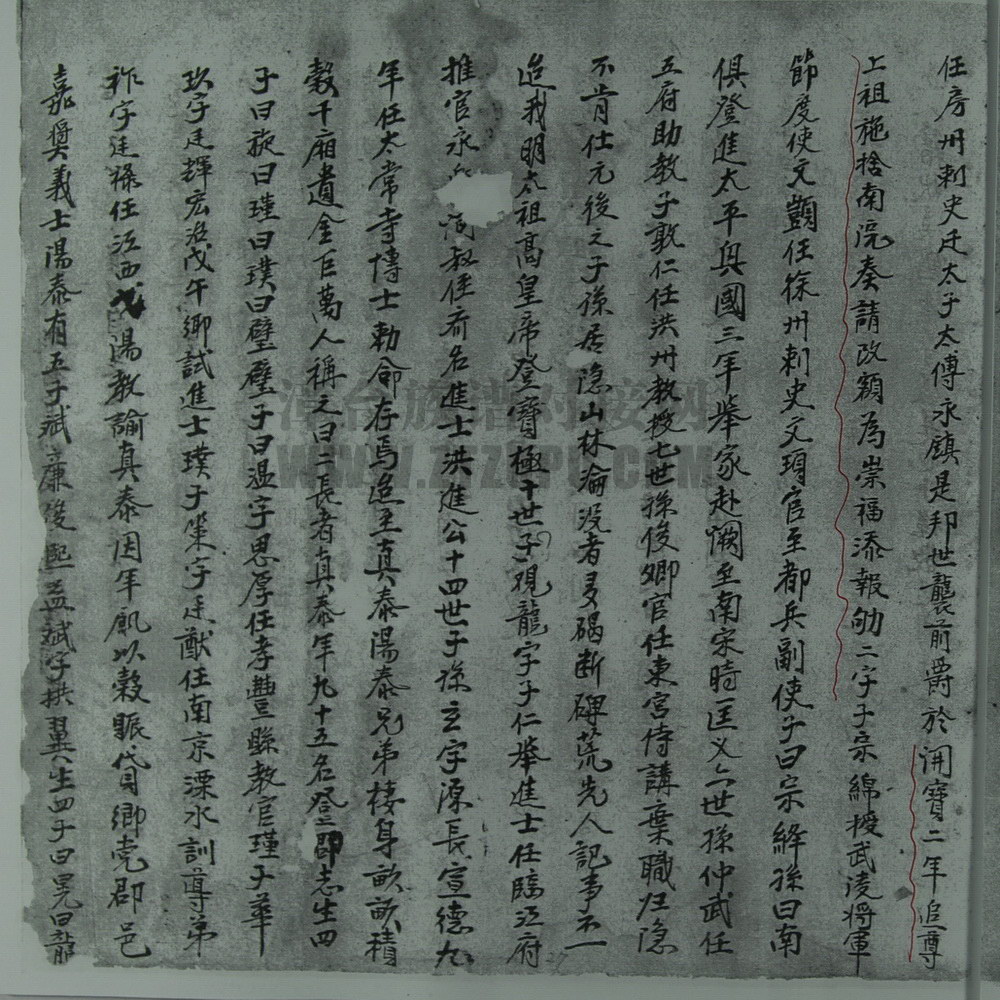 任房州刺史迁太子太傅永镇是邦世襲前爵於開寶二年追尊
上祖施捨南院奏請改額為崇福添報劬二字子宗綿授武凌將軍
節度使文顗任徐州刺史文頊官至都兵副使子曰宗絳孫曰南
俱登進太平興國三年舉家赴闕至南宋時匡义六世孫仲武任
五府助教子敦仁任洪州教授七世孫俊卿官任東宮侍講棄職归隐
不肯仕元後之子孫居隐山林淪没者多碣断碑荒先人記事不一
迨我明太祖高皇帝登寶極十世子观龍字子仁舉進士任臨江府
推官永 叔侄齐名進士洪進公十四世子孫玄字源長宣德九
年任太常寺博士勅命存焉迨至真泰陽泰兄弟棲身畝畝積
榖千廂遺金巨萬人稱之曰二長者真泰年九十五名登郡志生四
子曰琁曰瑾曰璞曰璧璧子曰温字思厚任孝豊縣教官瑾子華
玖字廷輝宏治戊午鄉試進士璞子策字廷猷任南京溧水訓導弟
祚字廷禄任江西 陽教諭真泰因年飢以榖賑貸鄉党郡邑
嘉奬義士陽泰有五子斌廉俊熙益斌字拱翼生四子曰晃曰龍
漳台族谱对接网
WWW.ZTZUPU.COM